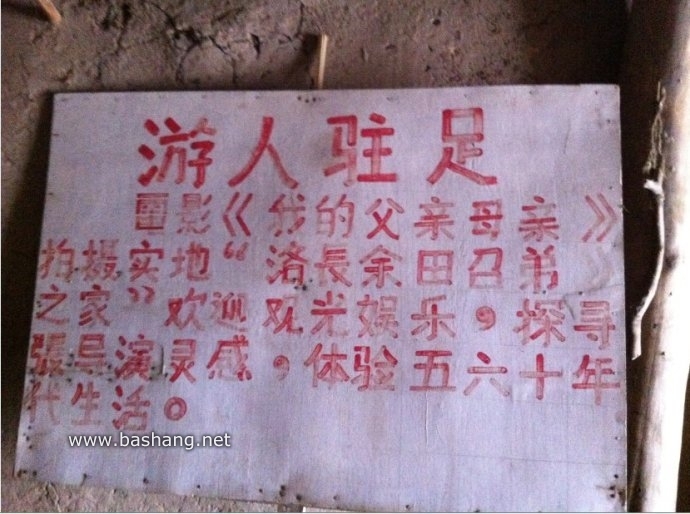 游人驻足
雷影《我的父亲母亲》
拍摄实地“洛長余田召弟》
之家”欢迎观光娱乐，探寻
張导演灵感，体验五六十年
代生活。
www.bashang.net